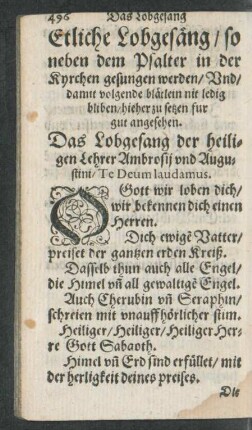 496 Das Lobgesang
Etliche Lobgesäng / so
neben dem Psalter in der
Kyrchen gesungen werden / Vnd /
damit volgende blätlein nit ledig
bliben / hieher zu setzen fur
gut angesehen.
Das Lobgesang der heili-
gen Lehrer Ambrosij vnd Augu-
stini / Te Deum laudamus.
O Gott wir loben dich /
wir bekennen dich einen
Herren.
Dich ewigē Vatter /
preiset der gantzen erden Kreiß.
Dasselb thun auch alle Engel /
die Himel vn̄ all gewaltigē Engel.
Auch Cherubin vn̄ Seraphin /
schreien mit vnauffhörlicher stim.
Heiliger / Heiliger / Heiliger Her-
re Gott Sabaoth.
Himel vn̄ Erd sind erfüllet / mit
der herligkeit deines preises.
Die